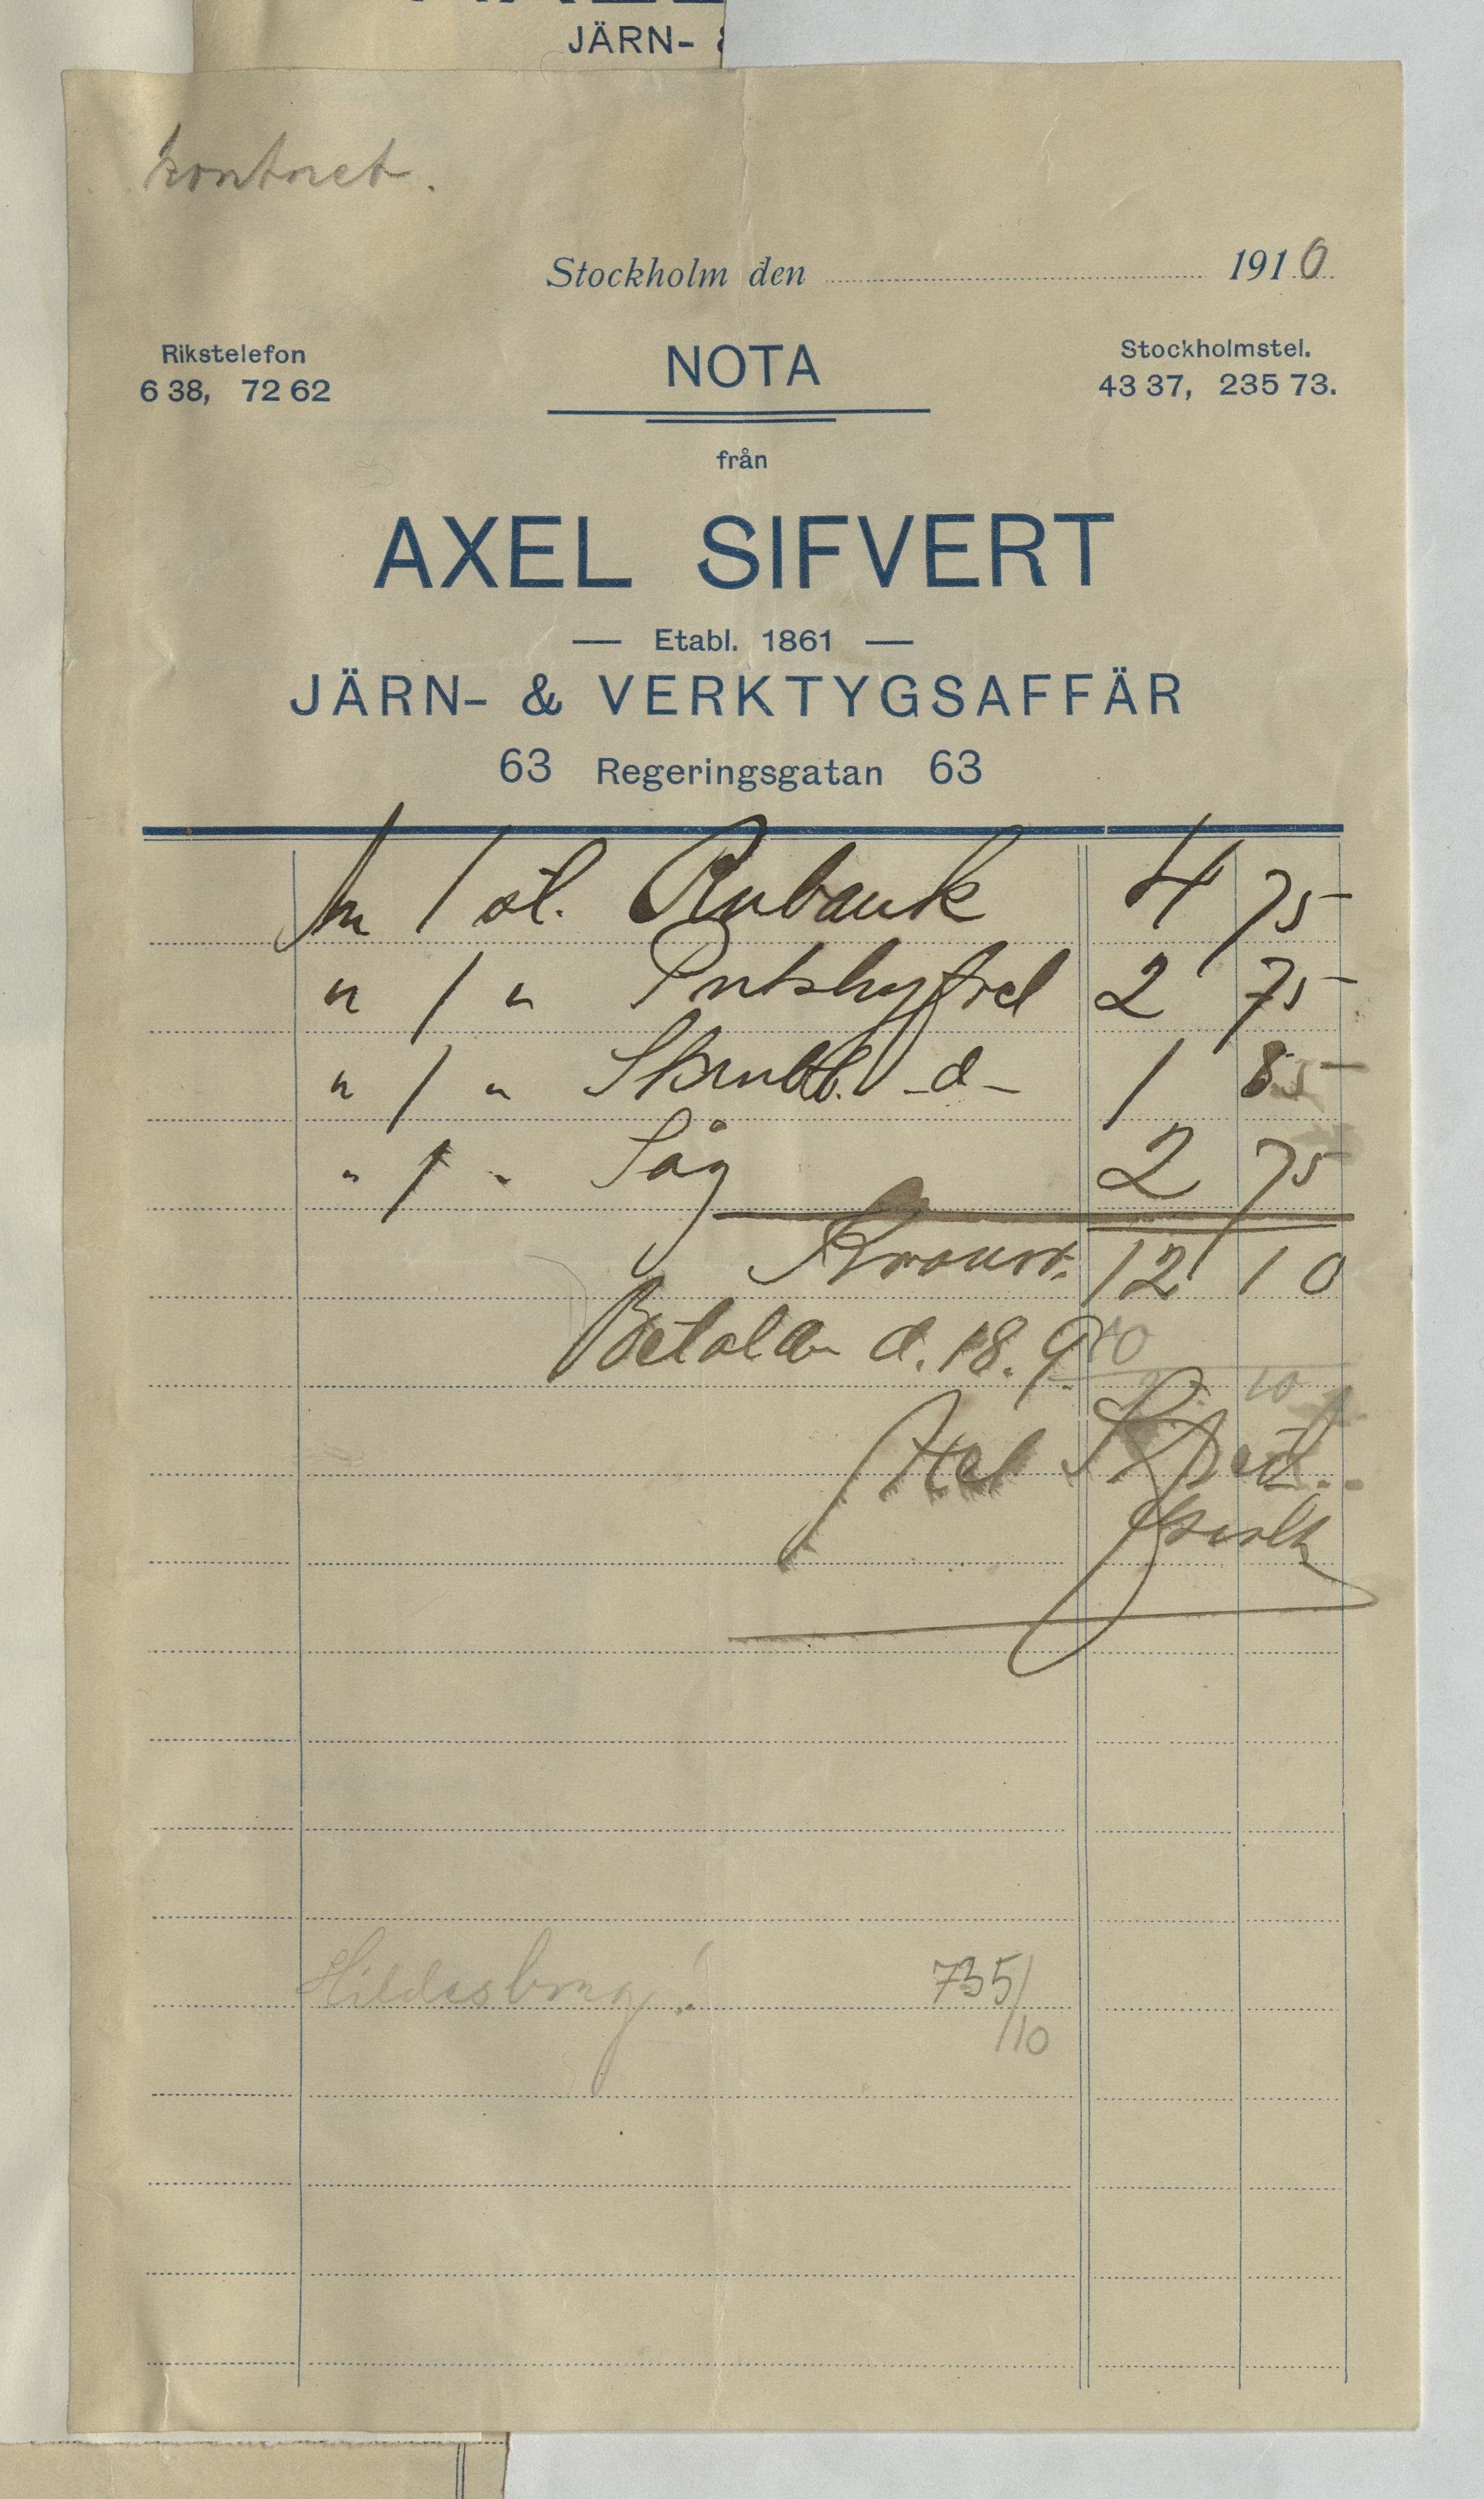 JÄRN-
kontoret.
Stockholm den 1910
Rikstelefon NOTA Stockholmstel.
6 38, 72 62 43 37, 235 73.
från
AXEL SIFVERT
— Etabl. 1861 —
JÄRN- & VERKTYGSAFFÄR
63 Regeringsgatan 63
1 st. Rubank 4 75
" 1 " Putshyfvel 2 75
" 1 " Skrubb. -d- 1 85
" 1 " Såg 2 75
Kronor. 12 10
Betalas d. 18. 9. 10
10
Axel Sifvert.
Hildesborg! 735/10